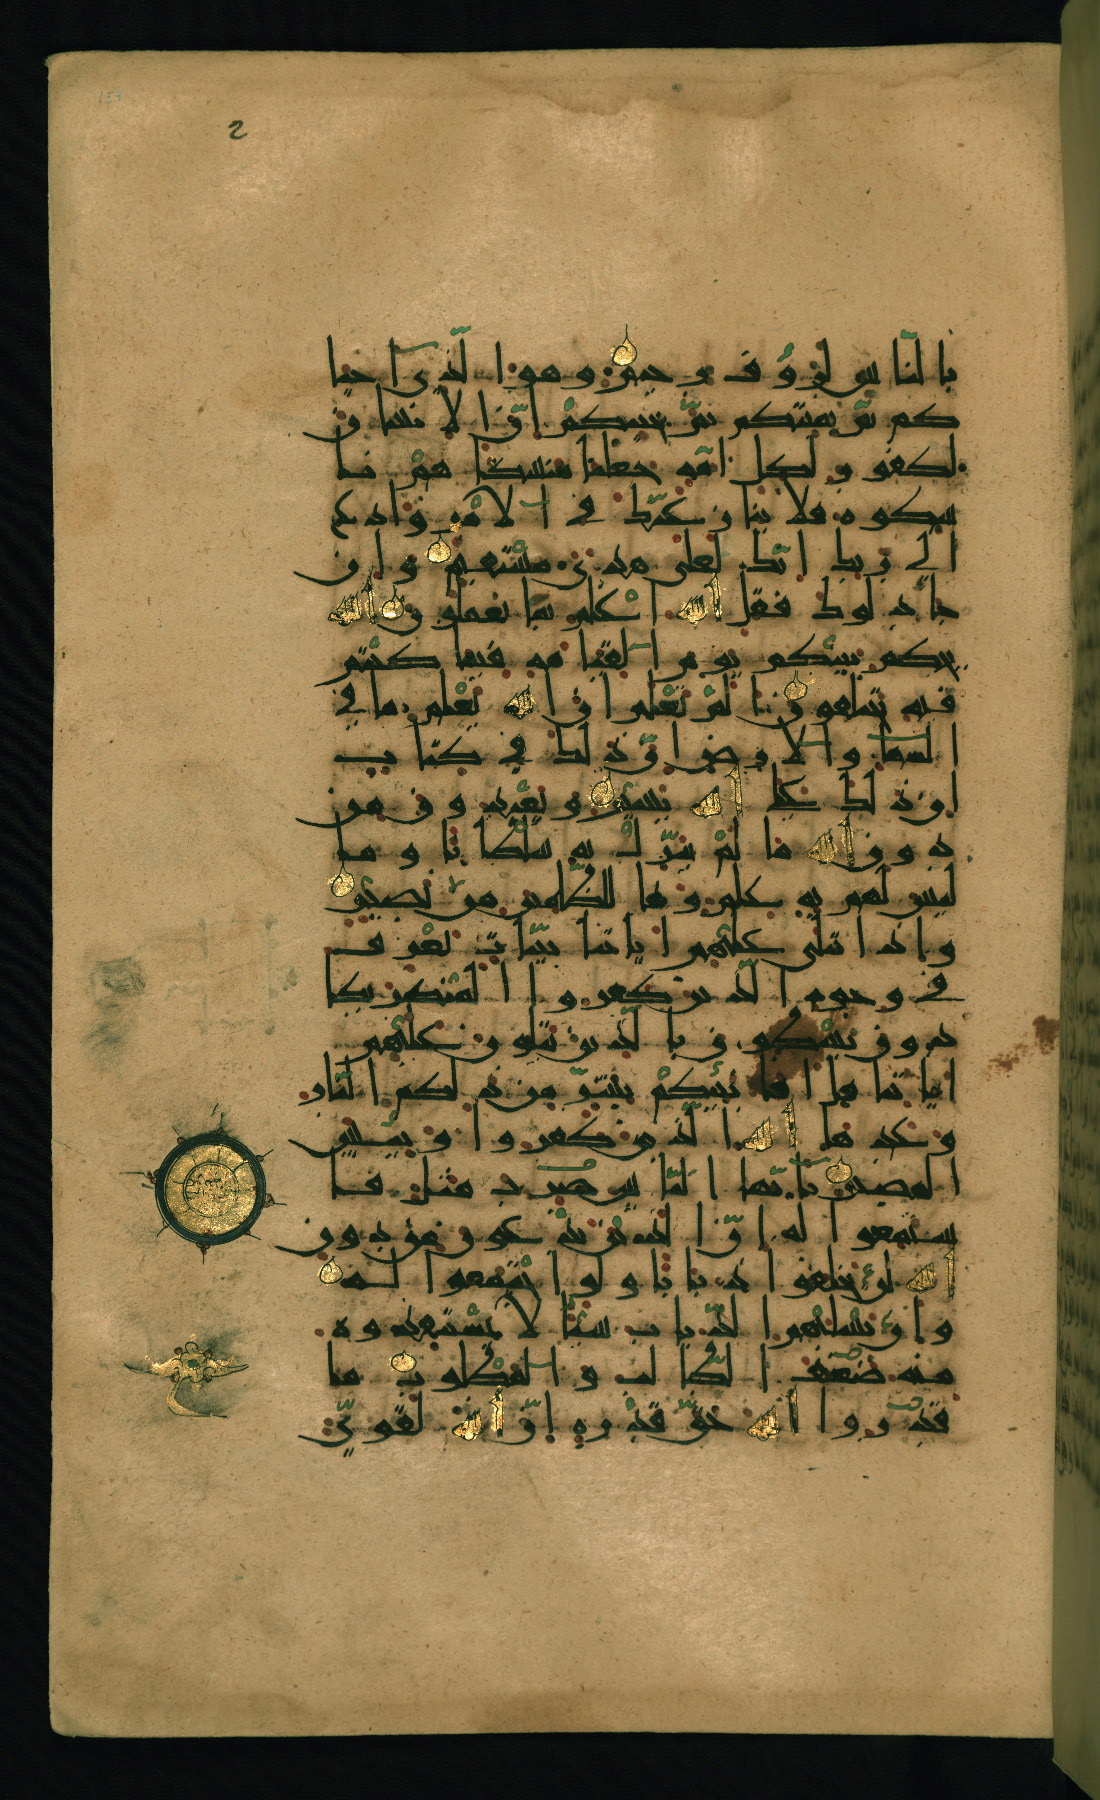 2
بالناس لرؤف رحيم وهو الذي احيا
كم ثم يميتكم ثم يحييكم ان الانسان
لكفور لكل امة جعلنا منسكا هم نا
سكوه فلا ينازعنك في الامر وادع
الى ربك انك لعلى هدى مستقيم وان
جادلوك فقل الله اعلم بما تعملون الله
يحكم بينكم يوم القيامة فيما كنتم
فيه تختلفون الم تعلم ان الله يعلم ما في
السما والارض ان ذلك في كتاب
ان ذلك على الله يسير ويعبدون من
دون الله ما لم ينزل به سلطانا وما
ليس لهم به علم وما للظلمين من نصير
واذا تتلى عليهم اياتنا بينات تعرف
في وجوه الذين كفروا المنكر يكا
دون يسطون بالذين يتلون عليهم
اياتنا قل افانبئكم بشر من ذلكم النار
وعدها الله الذين كفروا وبئس
المصير يايها الناس ضرب مثل فا
ستمعوا له ان الذين تدعون من دون
الله لن يخلقوا ذبابا ولو اجتمعوا له
وان يسلبهم الذباب شيا لا يستنقذوه
منه ضعف الطالب والمطلوب ما
قدروا الله حق قدره ان الله لقوي